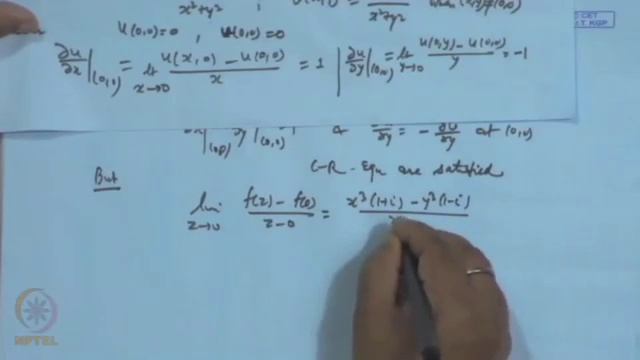 x²+y²
x²+y²
when (x,y)≠(0,0)
CET
I.I.T. KGP
u(0,0)=0 , v(0,0)=0
∂u/∂x|(0,0) = lt x→0 u(x,0) − u(0,0) / x = 1 | ∂u/∂y|(0,0) = lt y→0 u(0,y) − u(0,0) / y = −1
= − ∂v/∂x at (0,0)
C-R- Equ are satisfied
But
lim z→0 f(z) − f(0) / z−0 = x³(1+i) − y³(1−i)
NPTEL